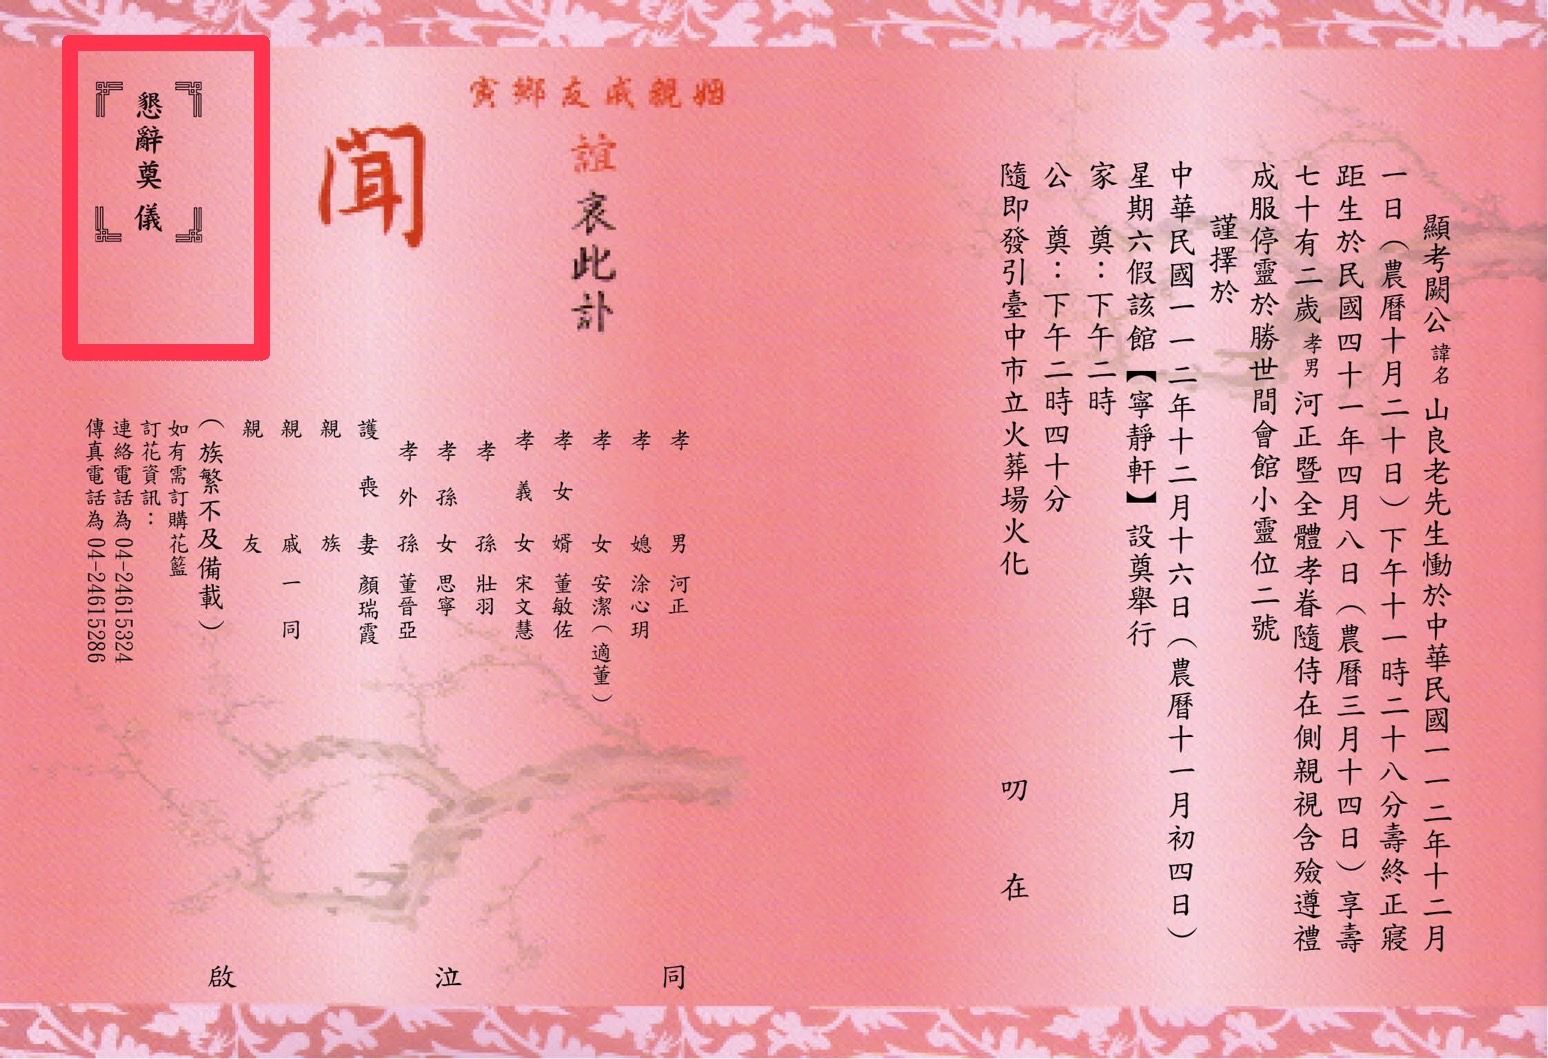 顯考闕公諱名山良老先生慟於中華民國一一二年十二月
一日（農曆十月二十日）下午十一時二十八分壽終正寢
距生於民國四十一年四月八日（農曆三月十四日）享壽
七十有二歲孝男河正暨全體孝眷隨侍在側親視含殮遵禮
成服停靈於勝世間會館小靈位二號
謹擇於
中華民國一一二年十二月十六日（農曆十一月初四日）
星期六假該館【寧靜軒】設奠舉行
家奠：下午二時
公奠：下午二時四十分
隨即發引臺中市立火葬場火化
叨在
姻親戚友鄉寅
誼哀此訃
聞
孝男河正
孝媳涂心玥
孝女安潔（適董）
孝女婿董敏佐
孝義女宋文慧
孝孫壯羽
孝孫女思寧
孝外孫董晉亞
護喪妻顏瑞霞
親族
親戚一同
親友
（族繁不及備載）
同泣啟
如有需訂購花籃
訂花資訊：
連絡電話為04-24615324
傳真電話為04-24615286
懇辭奠儀